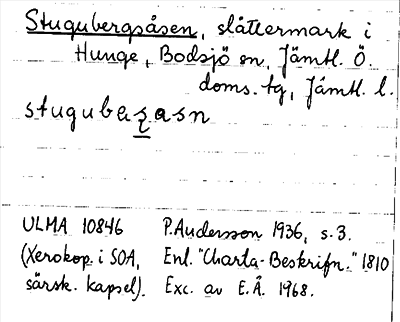 Stugubergsåsen, slåttermark i
Hunge, Bodsjö sn, Jämtl. Ö.
doms. tg, Jämtl. l.
stugubeʐasn
ULMA 10846 P. Andersson 1936, s. 3.
(Xerokop. i SOA, Enl. "Charta-Beskrifn." 1810
särsk. kapsel). Exc. av E.Å. 1968.